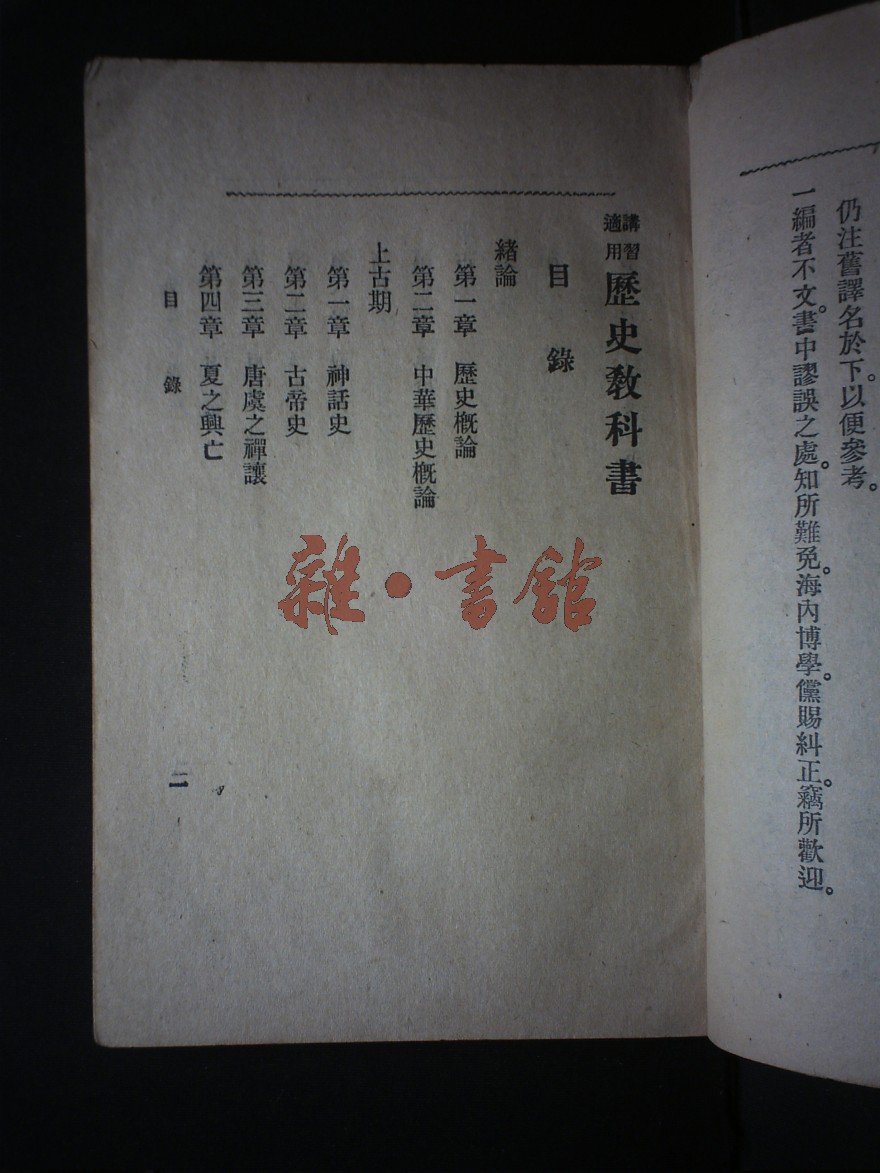 仍注舊譯名於下。以便參考。
一編者不文。書中謬誤之處。知所難免。海內博學。儻賜糾正。竊所歡迎。
講習適用歷史教科書
目錄
緒論
第一章 歷史概論
第二章 中華歷史概論
上古期
第一章 神話史
第二章 古帝史
第三章 唐虞之禪讓
第四章 夏之興亡
目錄 二
雜·書館